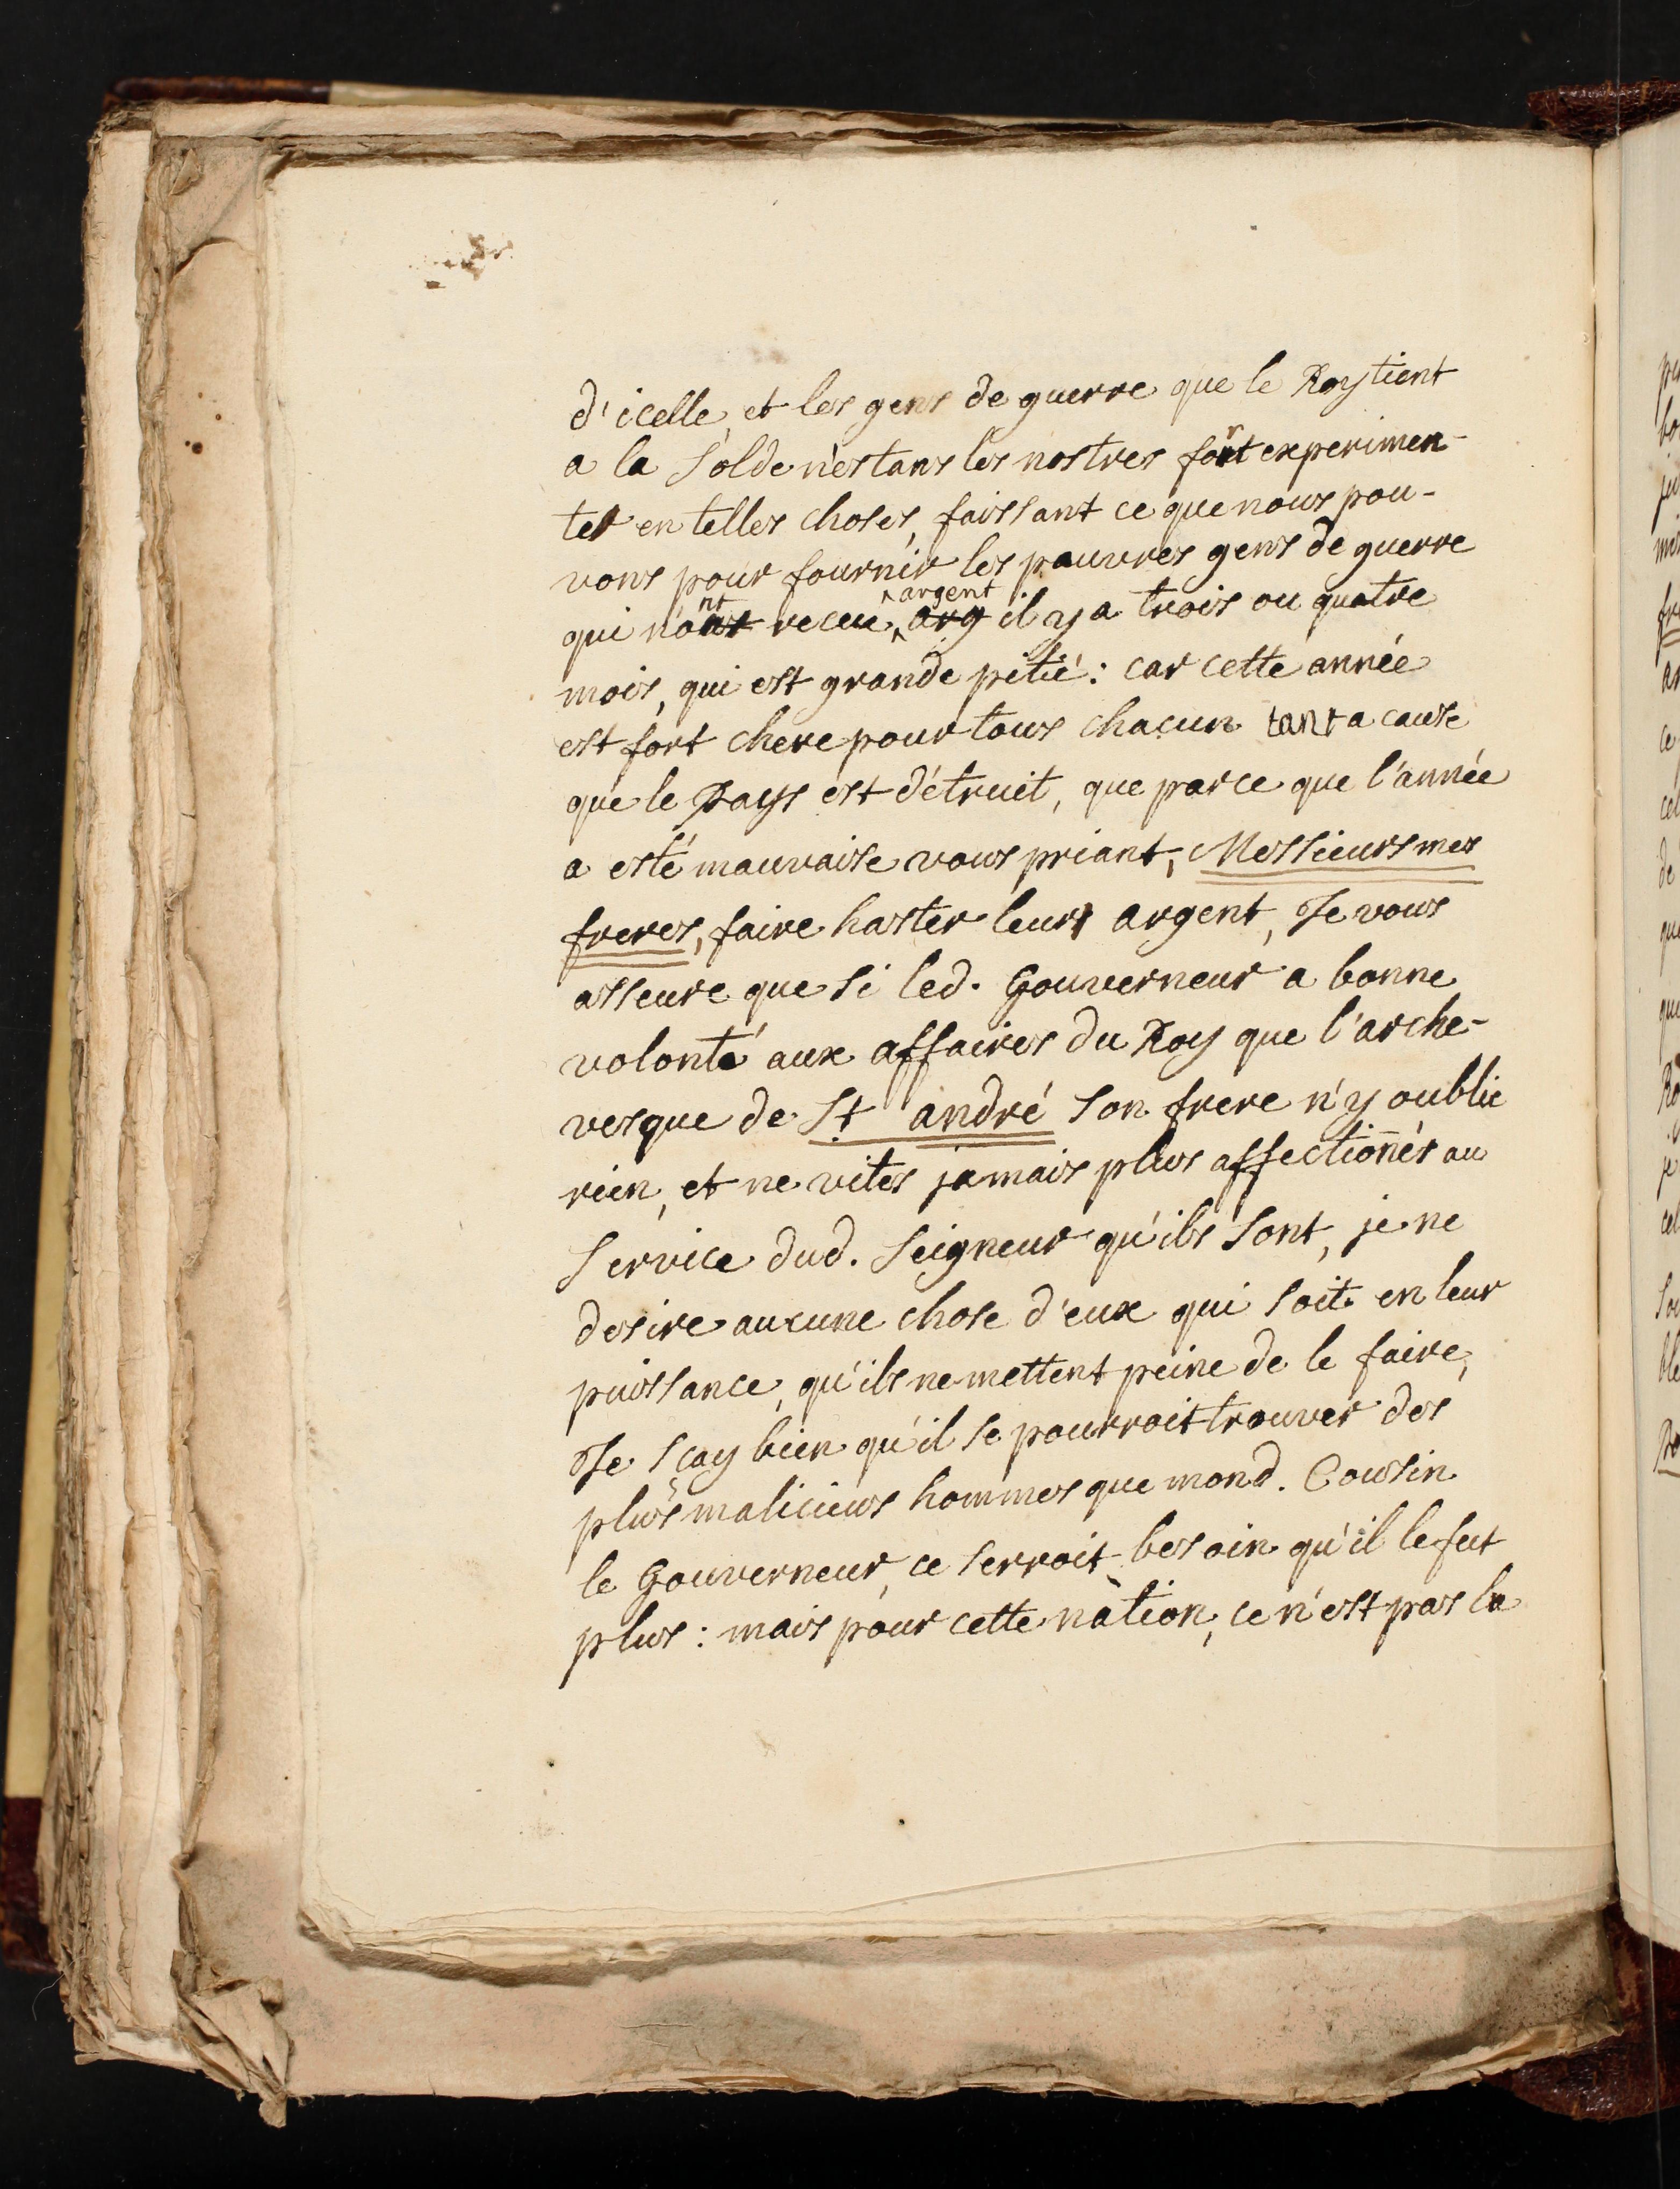 d'icelle, et les gens de guerre que le Roy tient
a la solde n'estans les nostres fort experimen-
tes en telles choses, faissant ce que nous pou-
vons pour fournir les pauvres gens de guerre
qui n'ont receu argent il y a trois ou quatre
mois, qui est grande pitié: car cette année
est fort chere pour tous chacun tant a cause
que le Pays est détruit, que parce que l'année
a esté mauvaise vous priant, Messieurs mes
freres, faire haster leur argent, Je vous
asseure que si led. Gouverneur a bonne
volonté aux affaires du Roy que l'arche-
vesque de St andré son frere n'y oublie
rien, et ne vites jamais plus affectionés au
service dud. Seigneur qu'ils sont, je ne
desire aucune chose d'eux qui soit en leur
puissance, qu'ils ne mettent peine de le faire,
Je sçay bien qu'il se pourroit trouver des
plus malicieus hommes que mond. Cousin
le Gouverneur, ce serroit besoin qu'il le fut
plus: mais pour cette nation, ce n'est pas la